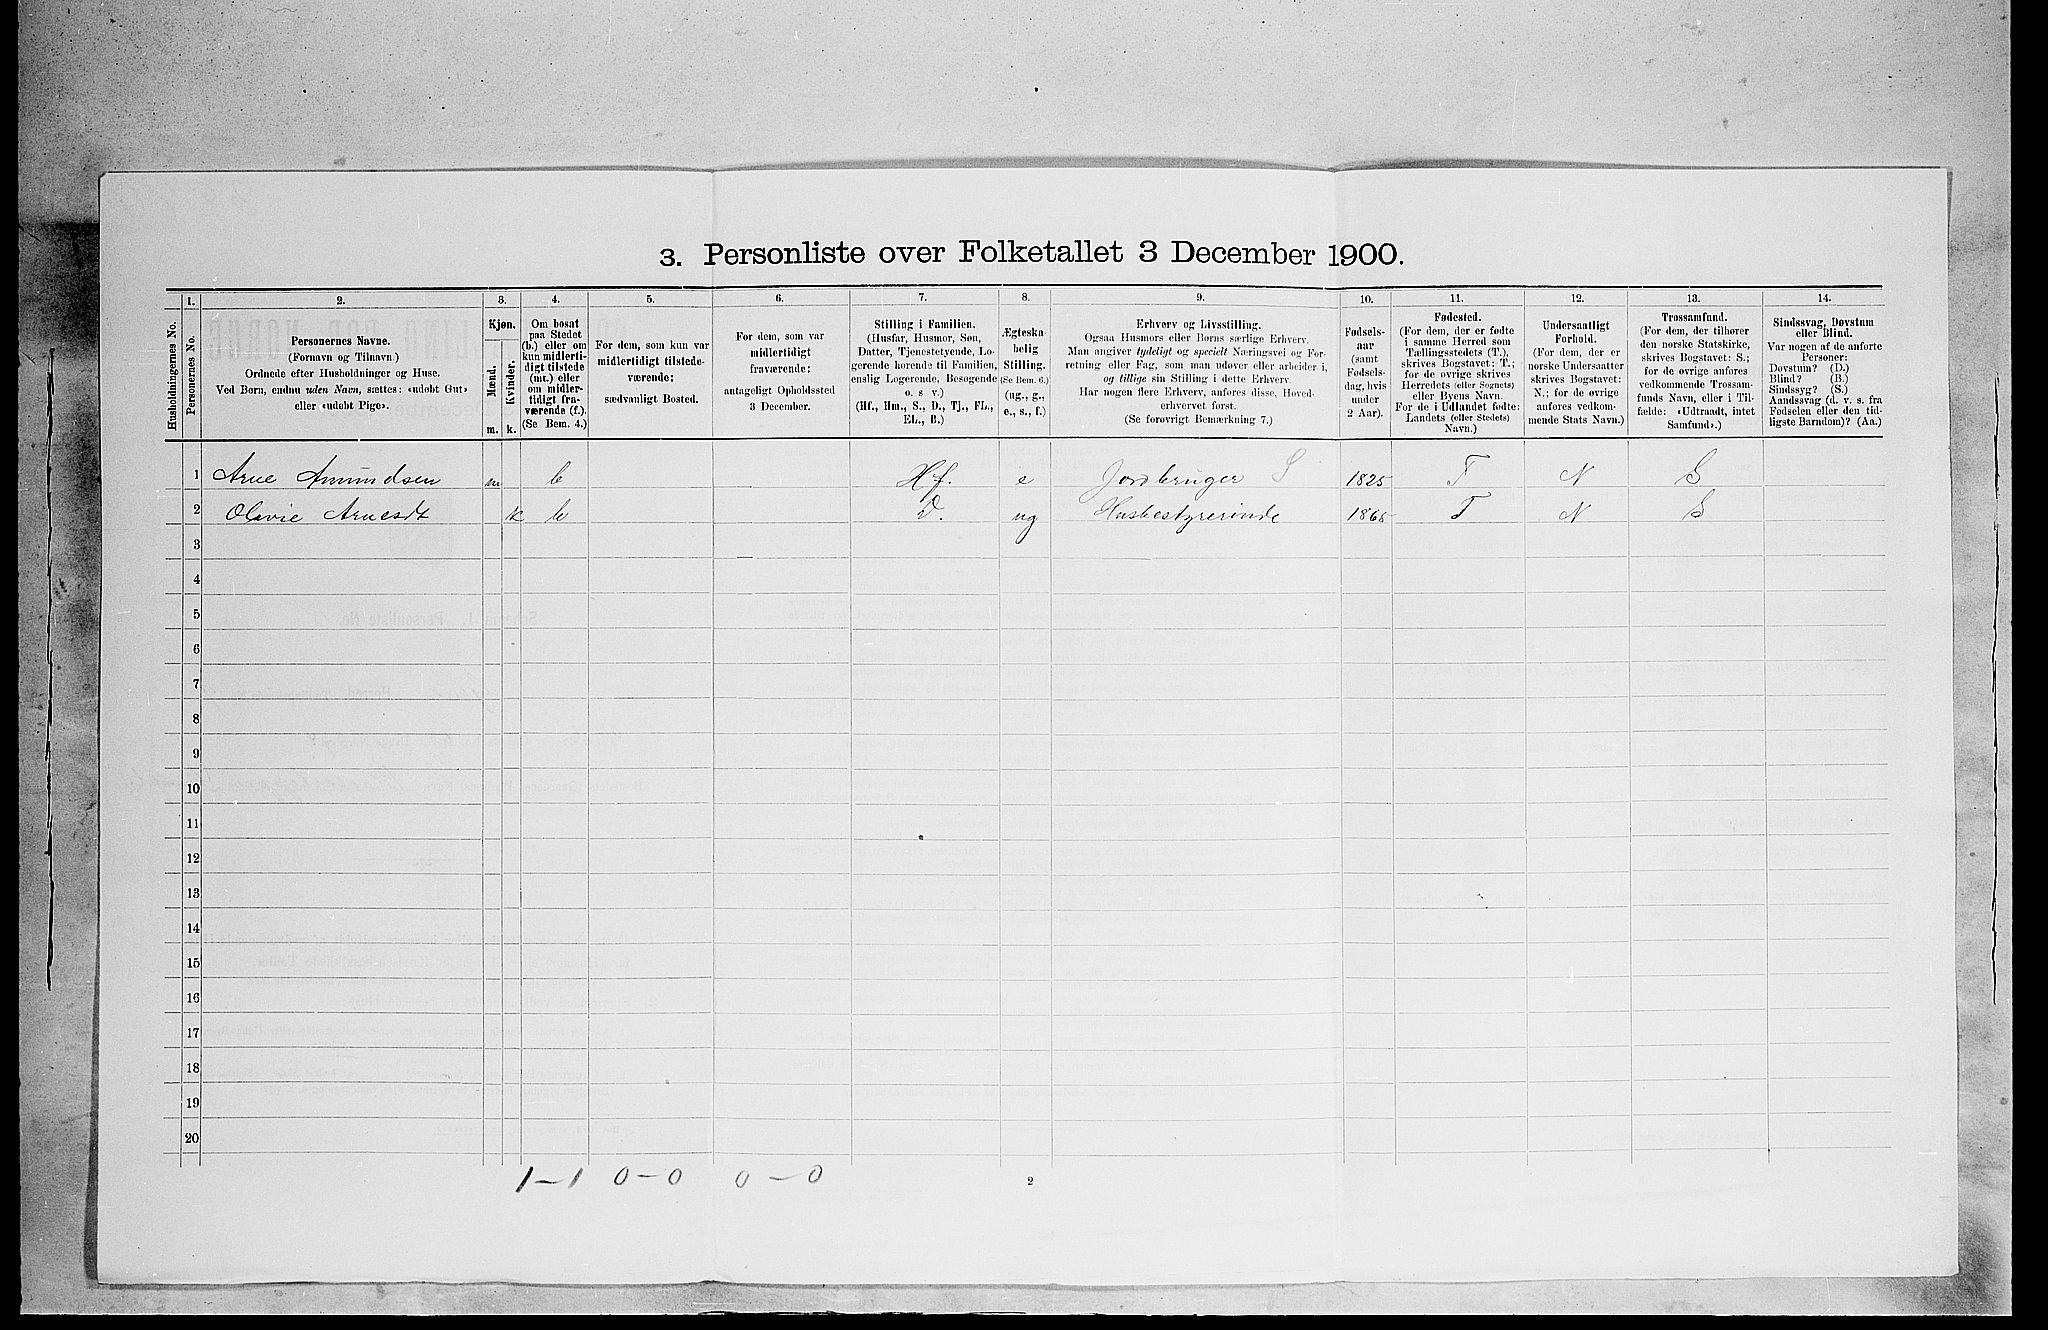 3. Personliste over Folketallet 3 December 1900.
1. 2. 3. 4. 5. 6. 7. 8. 9. 10. 11. 12. 13. 14.
Husholdningernes No.
Personernes No.
Personernes Navne.
(Fornavn og Tilnavn.)
Ordnede efter Husholdninger og Huse.
Ved Børn, endnu uden Navn, sættes: «udøbt Gut»
eller «udøbt Pige».
Kjøn.
Mænd.
m.
Kvinder.
k.
Om bosat
paa Stedet
(b.) eller om
kun midlerti-
digt tilstede
(mt.) eller
om midler-
tidigt fra-
værende (f.).
(Se Bem. 4.)
For dem, som kun var
midlertidigt tilstede-
værende:
sædvanligt Bosted.
For dem, som var
midlertidigt
fraværende:
antageligt Opholdssted
3 December.
Stilling i Familien.
(Husfar, Husmor, Søn,
Datter, Tjenestetyende, Lo-
gerende hørende til Familien,
enslig Logerende, Besøgende
o. s v.)
(Hf., Hm., S., D., Tj., FL.,
EL., B.)
Ægteska-
belig
Stilling.
(Se Bem. 6.)
(ug., g.,
e., s., f.)
Erhverv og Livsstilling.
Ogsaa Husmors eller Børns særlige Erhverv.
Man angiver tydeligt og specielt Næringsvei og For-
retning eller Fag, som man udøver eller arbeider i,
og tillige sin Stilling i dette Erhverv.
Har nogen flere Erhverv, anføres disse, Hoved-
erhvervet først.
(Se forøvrigt Bemærkning 7.)
Fødsels-
aar
(samt
Fødsels-
dag, hvis
under
2 Aar).
Fødested.
(For dem, der er fødte
i samme Herred som
Tællingsstedets (T.),
skrives Bogstavet: T.;
for de øvrige skrives
Herredets (eller Sognets)
eller Byens Navn.
For de i Udlandet fødte:
Landets (eller Stedets)
Navn.)
Undersaatligt
Forhold.
(For dem, der er
norske Undersaatter
skrives Bogstavet:
N.; for de øvrige
anføres vedkom-
mende Stats Navn.)
Trossamfund.
(For dem, der tilhører
den norske Statskirke,
skrives Bogstavet: S.;
for de øvrige anføres
vedkommende Trossam-
funds Navn, eller i Til-
fælde: «Udtraadt, intet
Samfund».)
Sindssvag, Døvstum
eller Blind.
Var nogen af de anførte
Personer:
Døvstum? (D.)
Blind? (B.)
Sindssyg? (S.)
Aandssvag (d. v. s. fra
Fødselen eller den tid-
ligste Barndom)? (Aa.)
1 Arne Amundsen m b Hf. e Jordbruger S 1825 T N S
2 Olavie Arnesdt k b D. ug Husbestyrerinde 1865 T N S
3
4
5
6
7
8
9
10
11
12
13
14
15
16
17
18
19
20
1–1 0–0 0–0
2